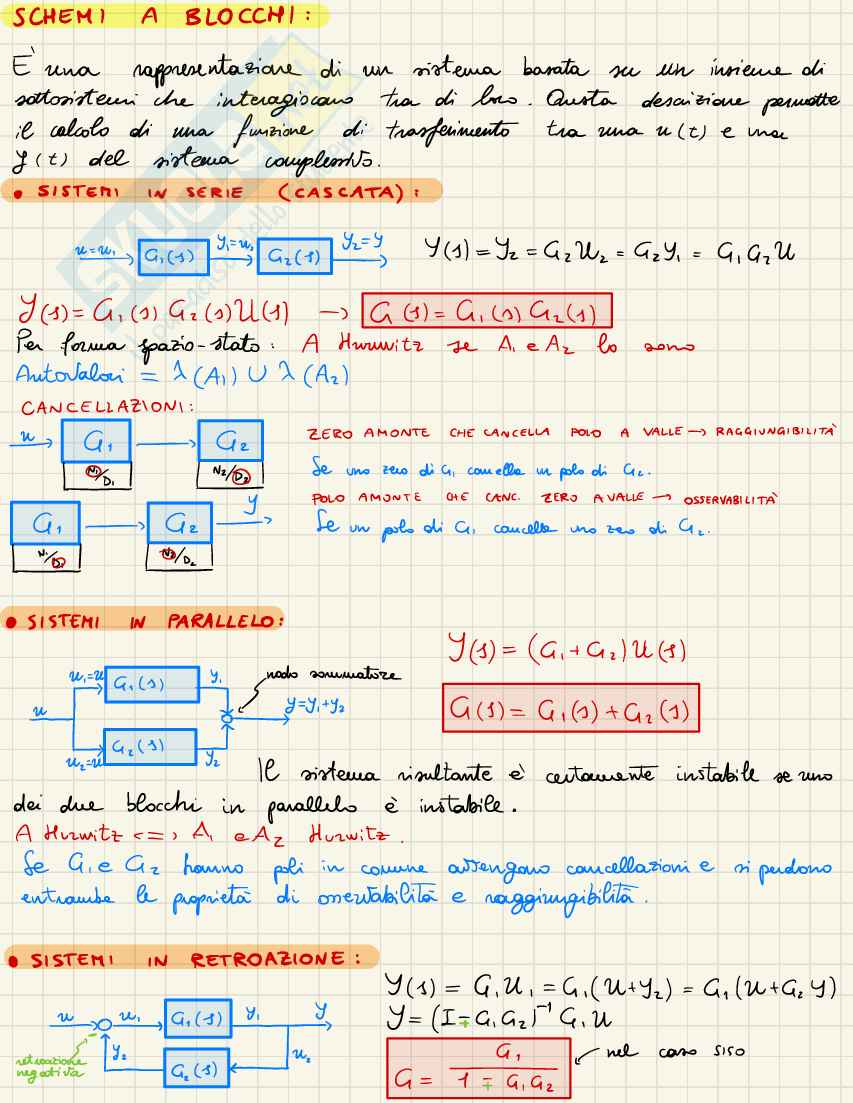 SCHEMI A BLOCCHI:
E' una rappresentazione di un sistema basata su un insieme di
sottosistemi che interagiscono tra di loro. Questa descrizione permette
il calcolo di una funzione di trasferimento tra una u(t) e una
y(t) del sistema complessivo.
• SISTEMI IN SERIE (CASCATA):
u=u₁ G₁(s) y₁=u₂ G₂(s) y₂=y Y(s) = Y₂ = G₂U₂ = G₂Y₁ = G₁G₂U
Y(s) = G₁(s) G₂(s) U(s) → G(s) = G₁(s) G₂(s)
Per forma spazio-stato: A Hurwitz se A₁ e A₂ lo sono
Autovalori = λ(A₁) ∪ λ(A₂)
CANCELLAZIONI:
u G₁ G₂
N₁/D₁ N₂/D₂
ZERO A MONTE CHE CANCELLA POLO A VALLE → RAGGIUNGIBILITÀ
Se uno zero di G₁ cancella un polo di G₂.
G₁ G₂ y
N₁/D₁ N₂/D₂
POLO A MONTE CHE CANC. ZERO A VALLE → OSSERVABILITÀ
Se un polo di G₁ cancella uno zero di G₂.
• SISTEMI IN PARALLELO:
u u₁=u G₁(s) y₁ nodo sommatore
y=y₁+y₂
u₂=u G₂(s) y₂
Y(s) = (G₁+G₂)U(s)
G(s) = G₁(s)+G₂(s)
Il sistema risultante è certamente instabile se uno
dei due blocchi in parallelo è instabile.
A Hurwitz <=> A₁ e A₂ Hurwitz.
Se G₁ e G₂ hanno poli in comune avvengono cancellazioni e si perdono
entrambe le proprietà di osservabilità e raggiungibilità.
• SISTEMI IN RETROAZIONE:
u u₁ G₁(s) y₁ y
y₂ G₂(s) u₂
retroazione
negativa
Y(s) = G₁U₁ = G₁(U+Y₂) = G₁(U+G₂Y)
Y = (I∓G₁G₂)⁻¹ G₁U
G = G₁ / (1 ∓ G₁G₂) nel caso SISO